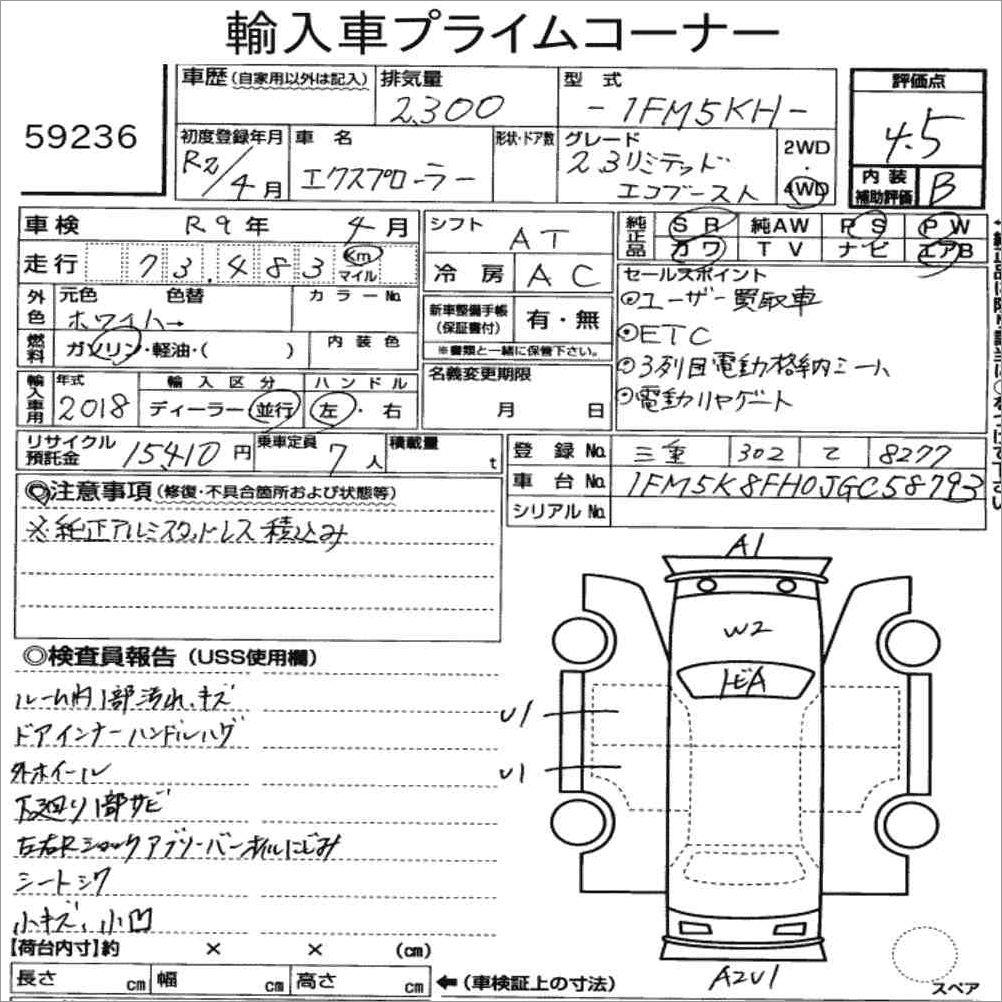 輸入車プライムコーナー
59236
車歴 (自家用以外は記入)
排気量
2,300
型式
-1FM5KH-
評価点
4.5
初度登録年月
R2/4月
車名
エクスプローラー
形状・ドア数
グレード
2.3リミテッド
エコブースト
2WD
・
4WD
内装
補助評価
B
車検 R9年 4月
シフト
AT
純正品
SR 純AW PS PW
カワ TV ナビ エアB
走行 73,483 km
マイル
冷房
AC
セールスポイント
◎ユーザー買取車
◎ETC
◎3列目電動格納シート
◎電動リヤゲート
外色
元色 色替 カラーNo.
ホワイト→
新車整備手帳
(保証書付)
有・無
※書類と一緒に保管下さい。
燃料
ガソリン・軽油・( )
内装色
名義変更期限
月 日
輸入車用
年式
2018
輸入区分
ディーラー・並行
ハンドル
左・右
リサイクル
預託金
15,410円
乗車定員
7人
積載量
t
登録No.
三重 302 て 8277
車台No.
1FM5K8FH0JGC58793
シリアルNo.
◎注意事項 (修復・不具合箇所および状態等)
※純正アルミスタッドレス積込み
A1
W2
トビA
U1
U1
A2U1
スペア
◎検査員報告 (USS使用欄)
ルーム内1部汚れ、キズ
ドアインナーハンドルハゲ
外ホイール
下廻り1部サビ
左右Rショックアブソーバーオイルにじみ
シートシワ
小キズ、小凹
【荷台内寸】約 × × (cm)
長さ cm 幅 cm 高さ cm
←(車検証上の寸法)